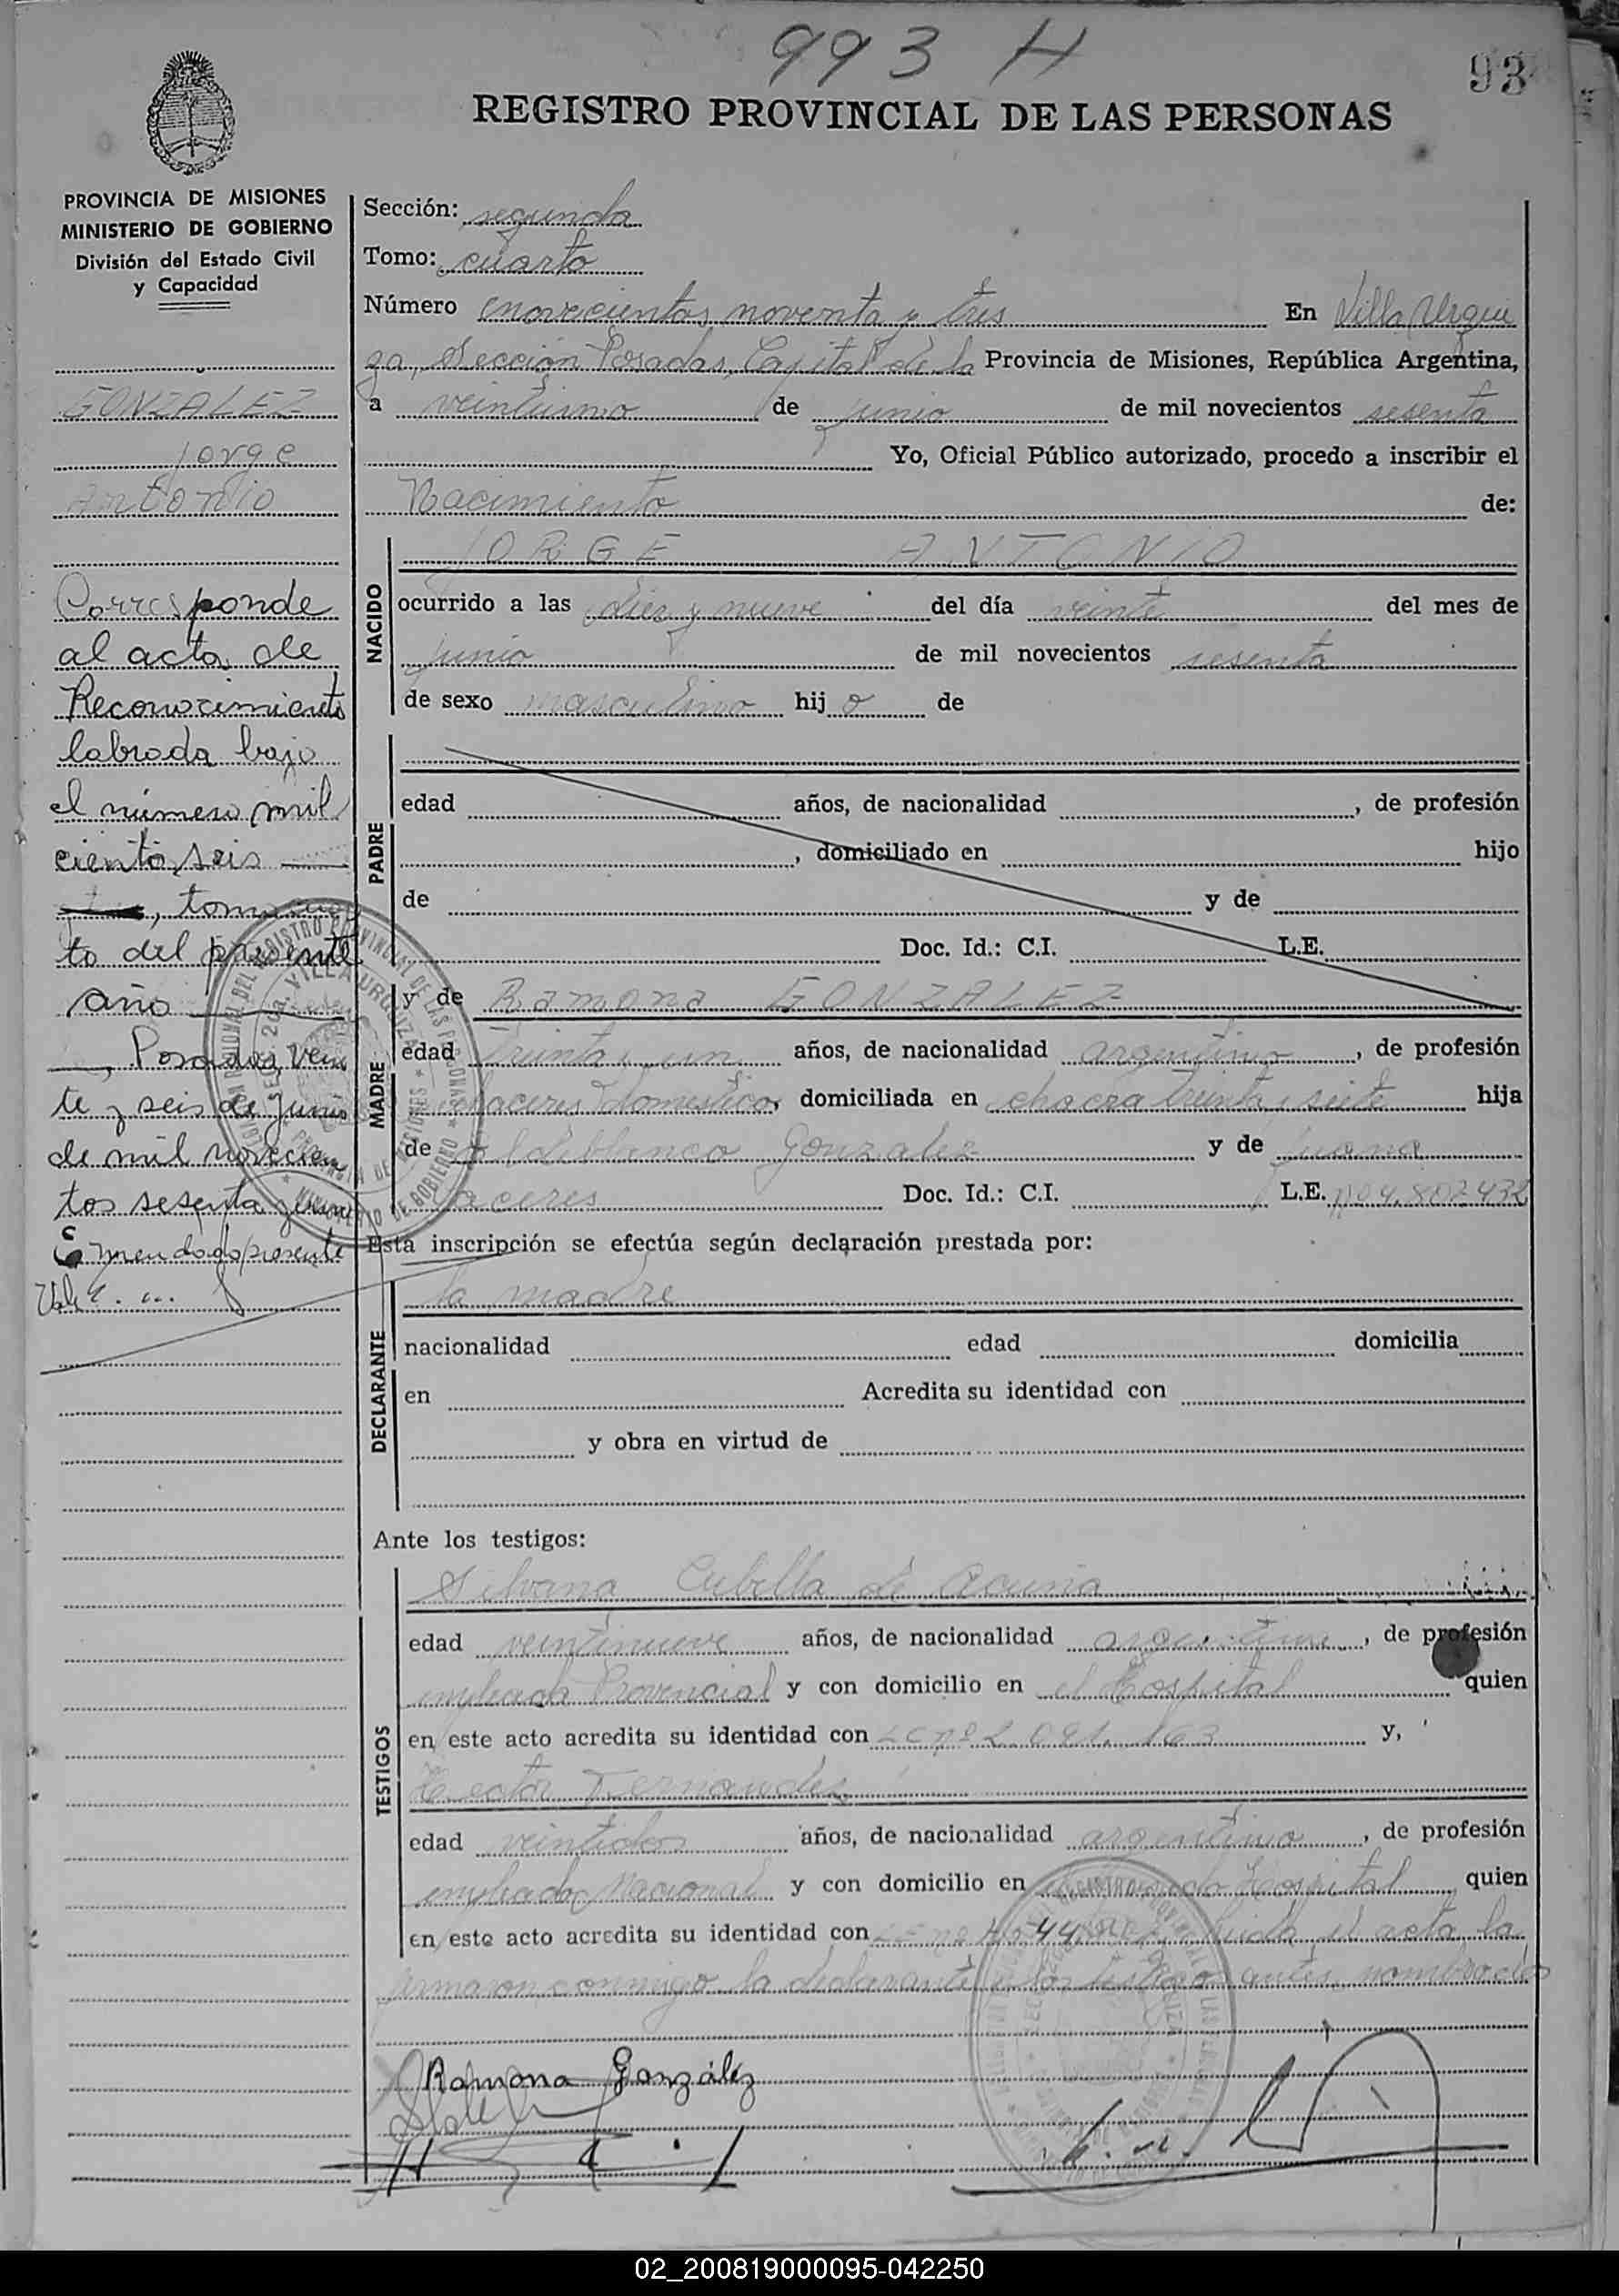 993 H
93
REGISTRO PROVINCIAL DE LAS PERSONAS
PROVINCIA DE MISIONES
MINISTERIO DE GOBIERNO
División del Estado Civil
y Capacidad
GONZALEZ
Jorge
Antonio
Corresponde
al acta de
Reconocimiento
labrada bajo
el número mil
ciento seis
, tomo cuar
to del presente
año
, Posadas, vein
te y seis de junio
de mil novecien
tos sesenta
Enmendado presente
Vale.
Sección: segunda
Tomo: cuarto
Número novecientos noventa y tres En Villa Urqui
za, Sección Posadas, Capital de la Provincia de Misiones, República Argentina,
a veintiuno de junio de mil novecientos sesenta
Yo, Oficial Público autorizado, procedo a inscribir el
Nacimiento de:
NACIDO
JORGE ANTONIO
ocurrido a las diez y nueve del día veinte del mes de
junio de mil novecientos sesenta
de sexo masculino hijo de
PADRE
edad años, de nacionalidad , de profesión
, domiciliado en hijo
de y de
Doc. Id.: C.I. L.E.
MADRE
y de Ramona GONZALEZ
edad treinta y un años, de nacionalidad argentina, de profesión
quehaceres domesticos, domiciliada en chacra treinta y siete hija
de Aldeblanco Gonzalez y de Juana
Caceres Doc. Id.: C.I. L.E. nº 4.802432
Esta inscripción se efectúa según declaración prestada por:
DECLARANTE
la madre
nacionalidad edad domicilia
en Acredita su identidad con
y obra en virtud de
Ante los testigos:
TESTIGOS
Silvana Cubilla de Acuña
edad veintinueve años, de nacionalidad argentina, de profesión
empleada Provincial y con domicilio en el Hospital quien
en este acto acredita su identidad con LC nº 2.091.163 y,
Hector Fernandez
edad veintidos años, de nacionalidad argentino, de profesión
empleado Nacional y con domicilio en Hospital quien
en este acto acredita su identidad con LE nº leida el acta la
firmaron conmigo la declarante y los testigos antes nombrados
Ramona González
02_200819000095-042250